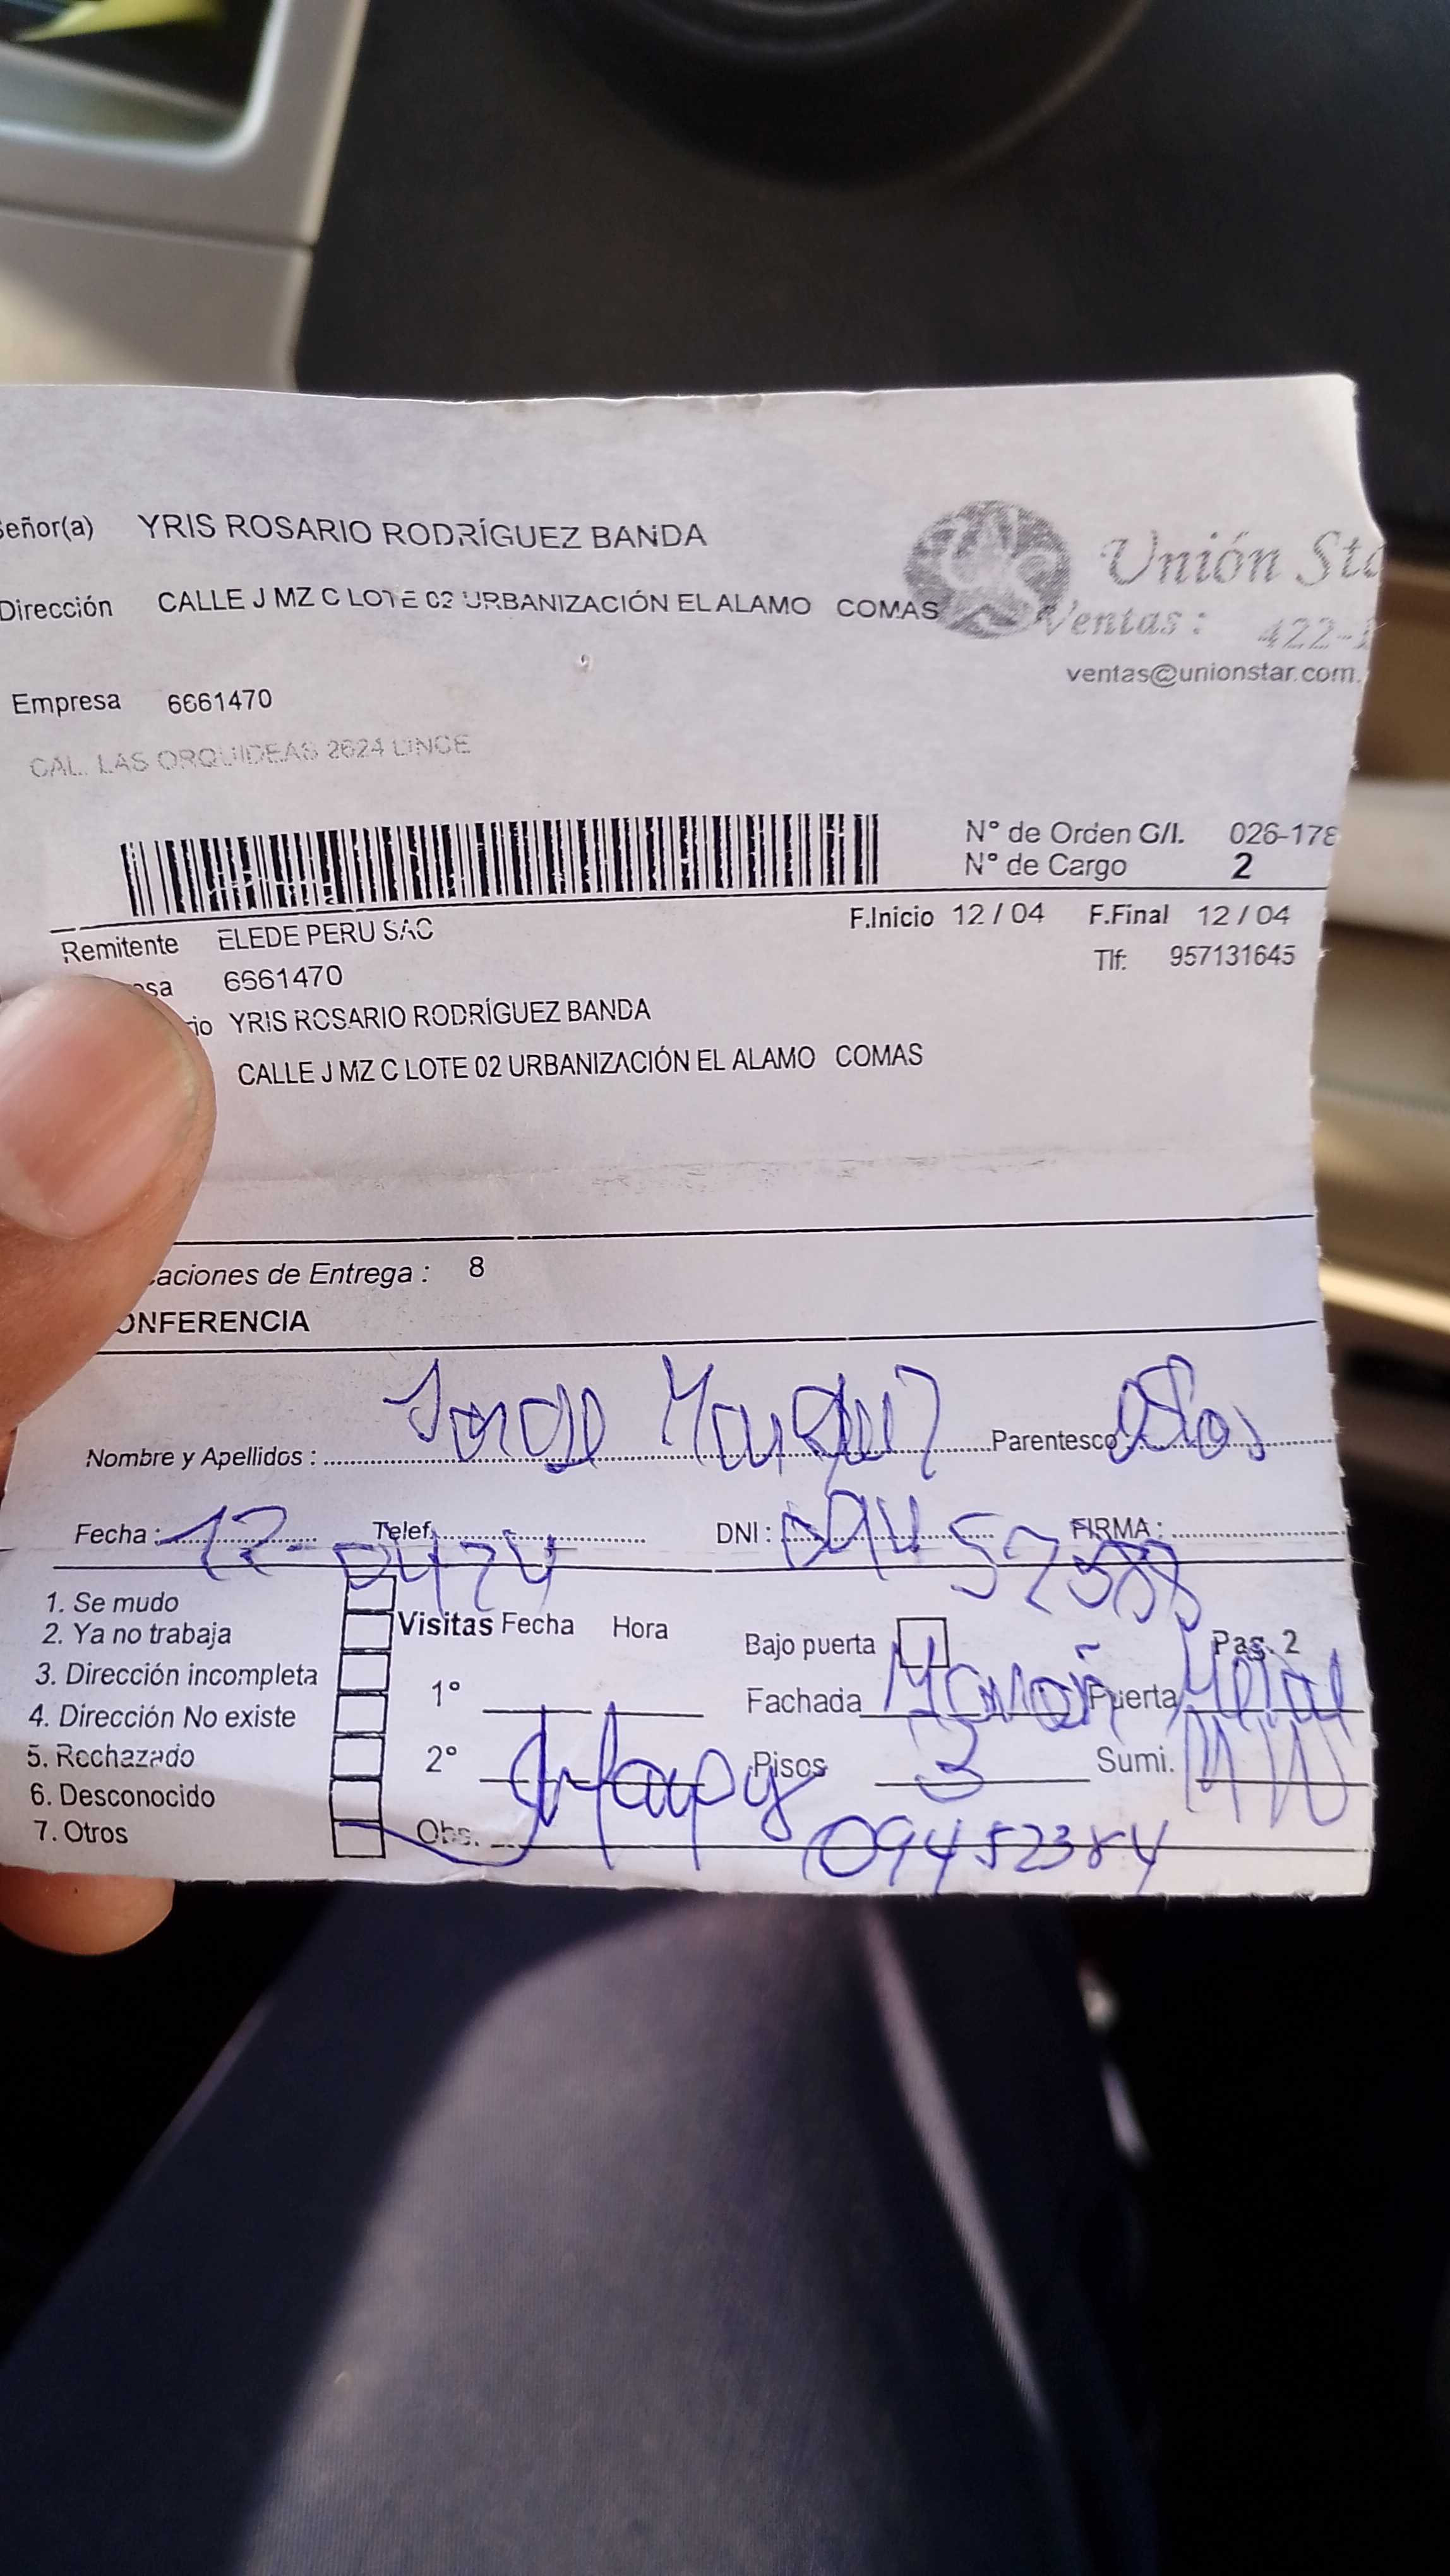 Señor(a) YRIS ROSARIO RODRÍGUEZ BANDA
Unión Sta
Dirección CALLE J MZ C LOTE 02 URBANIZACIÓN EL ALAMO COMAS
Ventas : 422-
ventas@unionstar.com.
Empresa 6661470
CAL. LAS ORQUIDEAS 2624 LINCE
N° de Orden G/I. 026-178
N° de Cargo 2
Remitente ELEDE PERU SAC F.Inicio 12 / 04 F.Final 12 / 04
esa 6661470 Tlf: 957131645
rio YRIS ROSARIO RODRÍGUEZ BANDA
CALLE J MZ C LOTE 02 URBANIZACIÓN EL ALAMO COMAS
caciones de Entrega : 8
ONFERENCIA
Nombre y Apellidos : Jorge Parentesco
Fecha : 12-0424 Telef. DNI : FIRMA :
1. Se mudo
2. Ya no trabaja Visitas Fecha Hora Bajo puerta Pas. 2
3. Dirección incompleta 1° Fachada Marrón Puerta Metal
4. Dirección No existe
5. Rechazado 2° Pisos 3 Sumi.
6. Desconocido
7. Otros Obs. 09452384